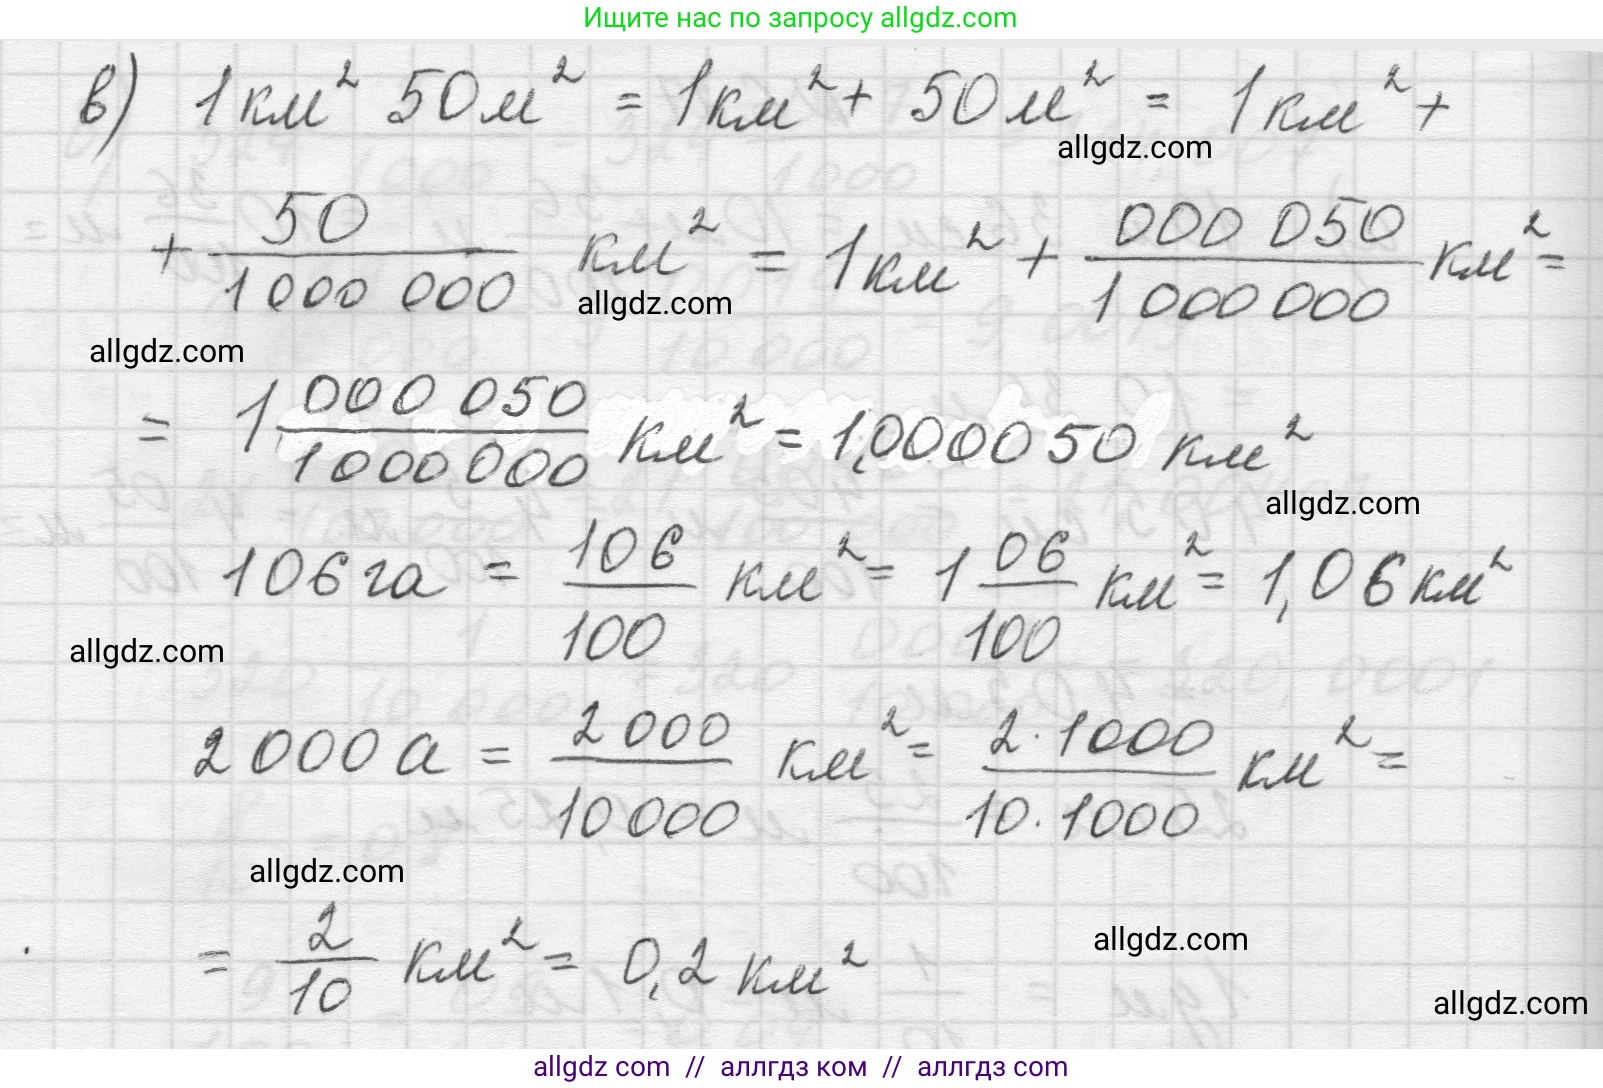 Ищите нас по запросу allgdz.com
в) 1 км² 50 м² = 1 км² + 50 м² = 1 км² +
allgdz.com
+ 50/1 000 000 км² = 1 км² + 000 050/1 000 000 км² =
allgdz.com
allgdz.com
= 1 000 050/1 000 000 км² = 1,000050 км²
allgdz.com
106 га = 106/100 км² = 1 06/100 км² = 1,06 км²
allgdz.com
2 000 а = 2 000/10 000 км² = 2·1000/10·1000 км² =
allgdz.com
= 2/10 км² = 0,2 км²
allgdz.com
allgdz.com
allgdz.com // аллгдз ком // аллгдз.com